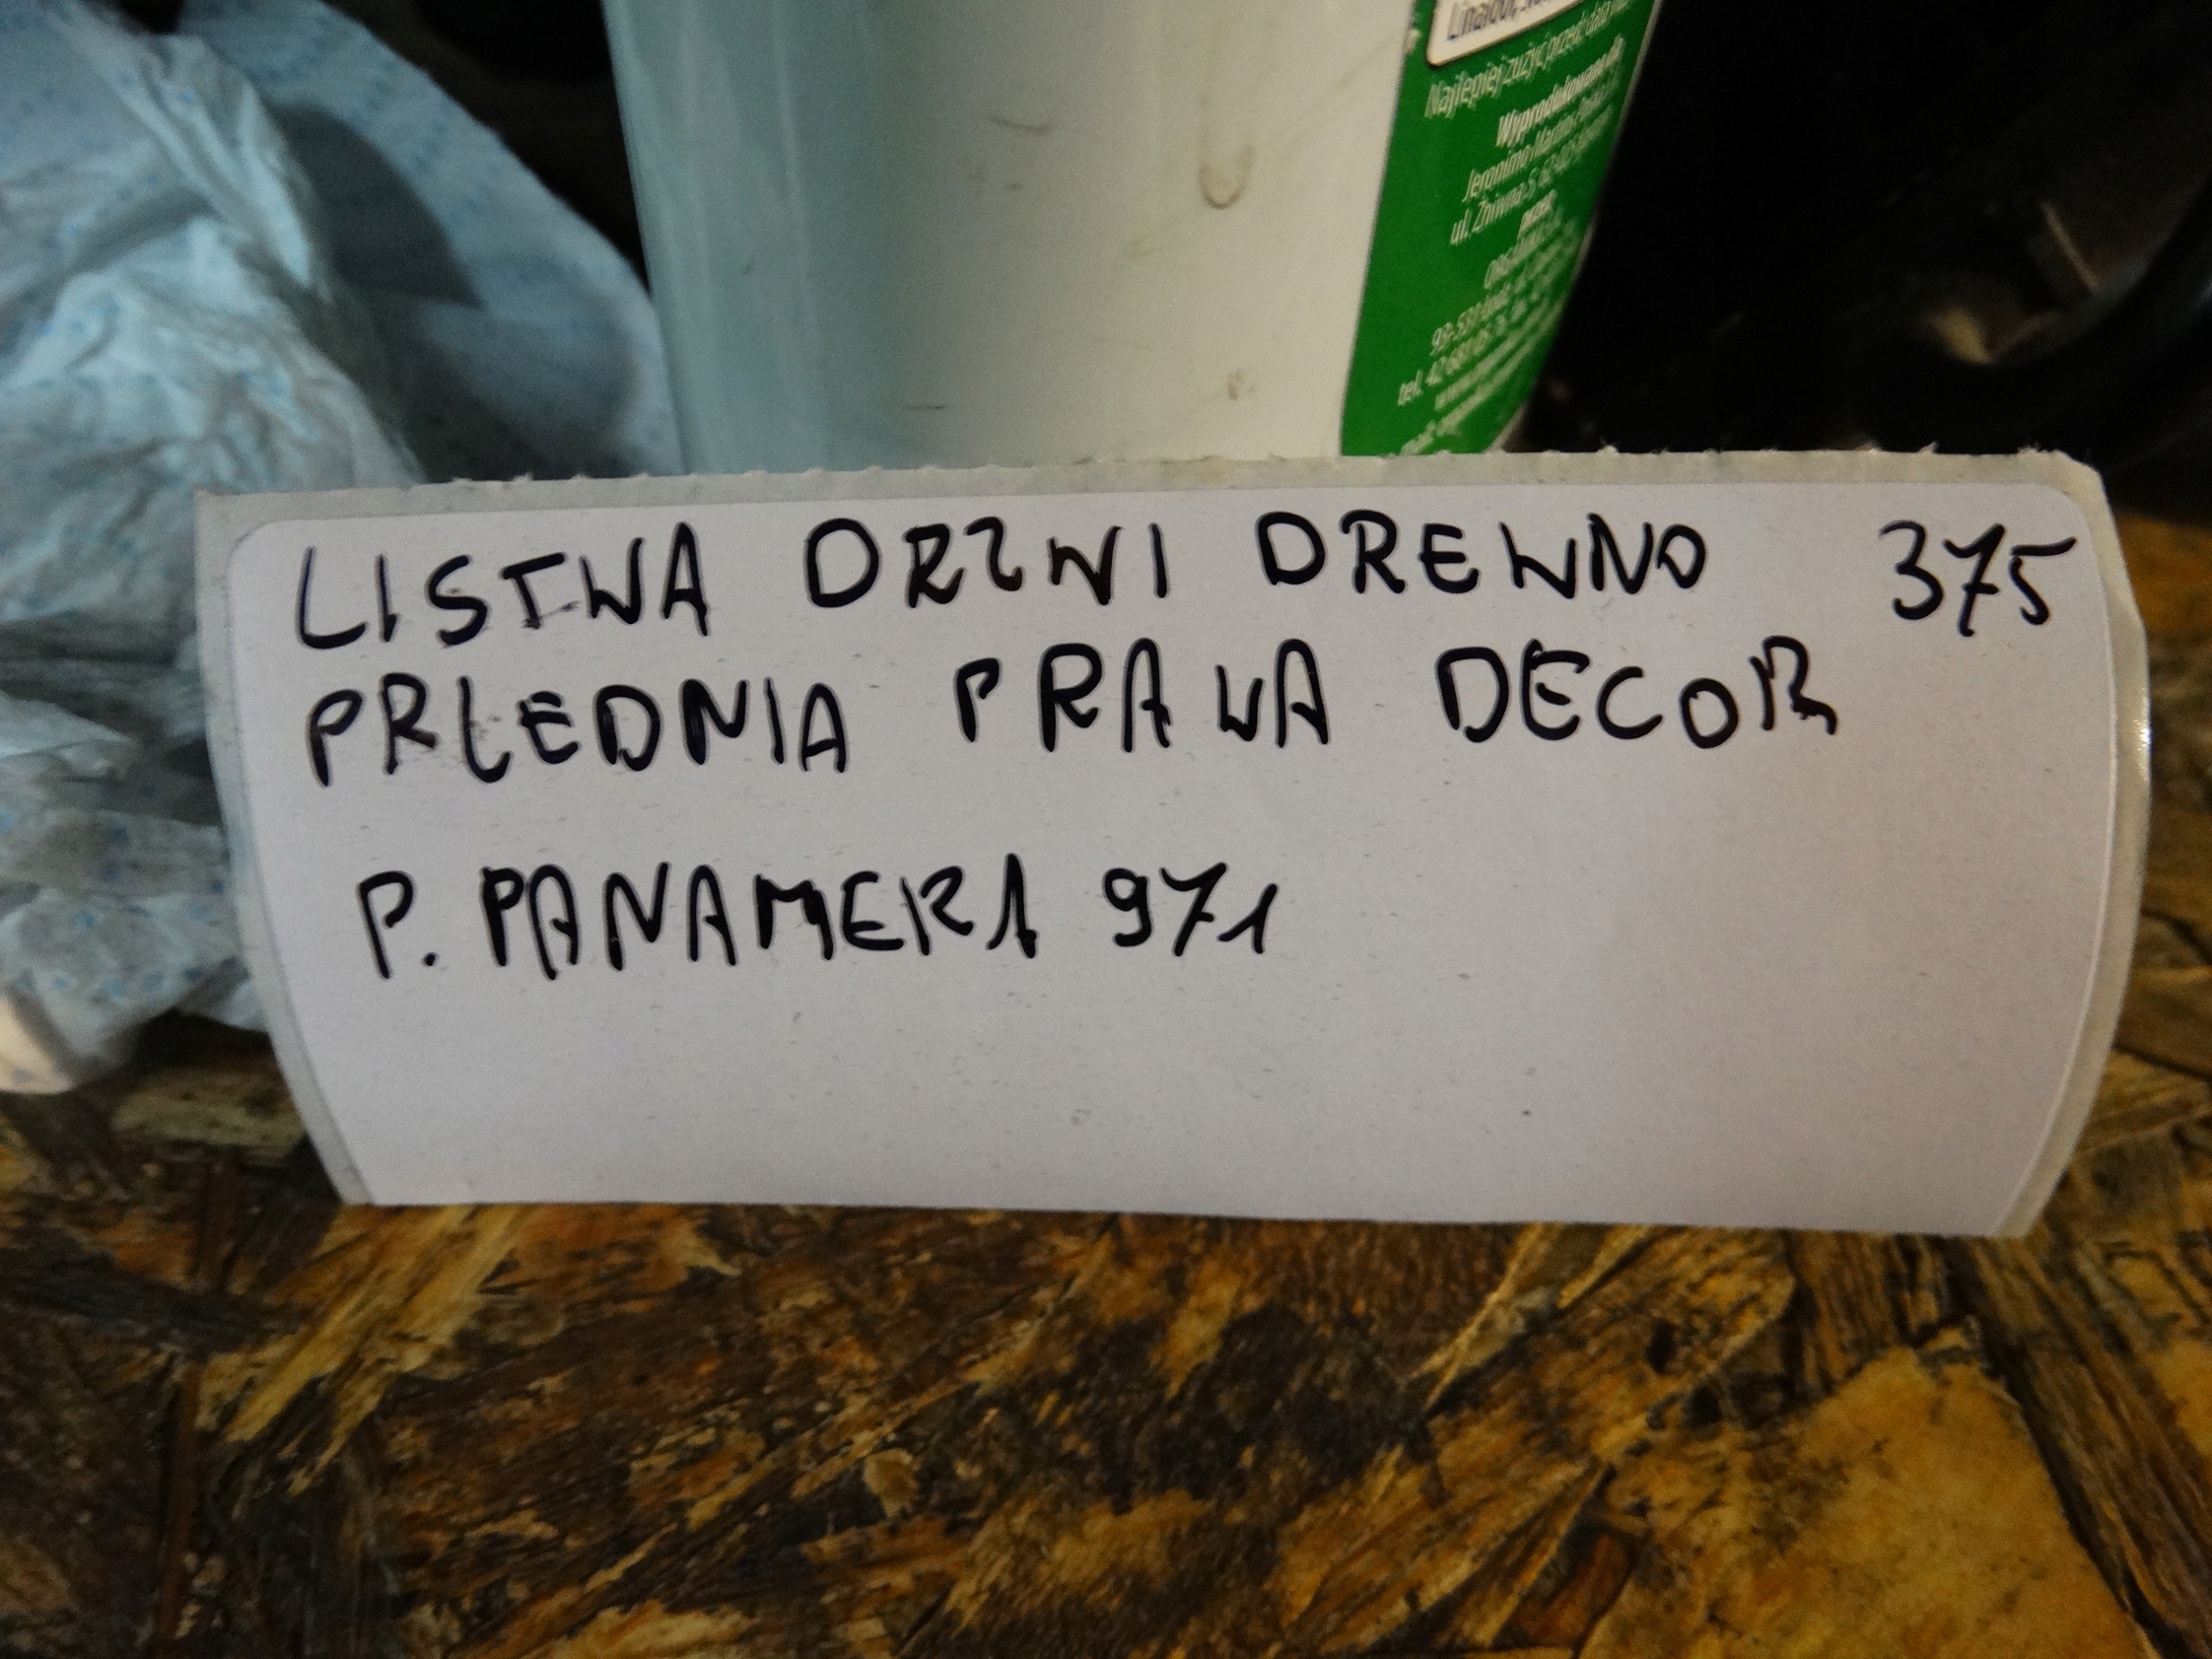 Linalool,
Najlepiej zużyć przed: data
Wyprodukowano dla
Jeronimo Martins
ul. Żniwna 5, 62-025
przez:
93-
tel. 42 681
LISTWA DRZWI DREWNO 375
PRZEDNIA PRAWA DECOR
P. PANAMERA 971